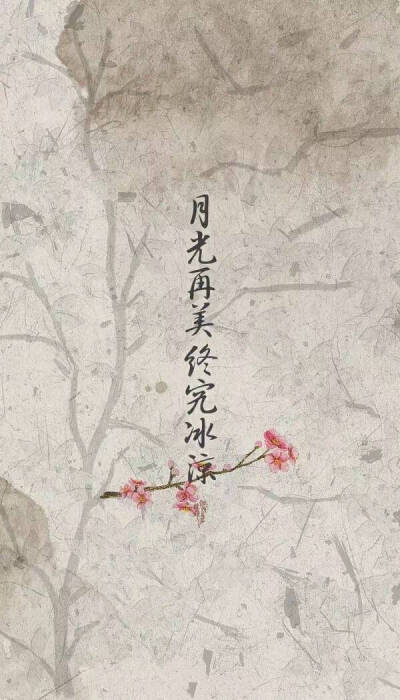 月光再美终究冰凉